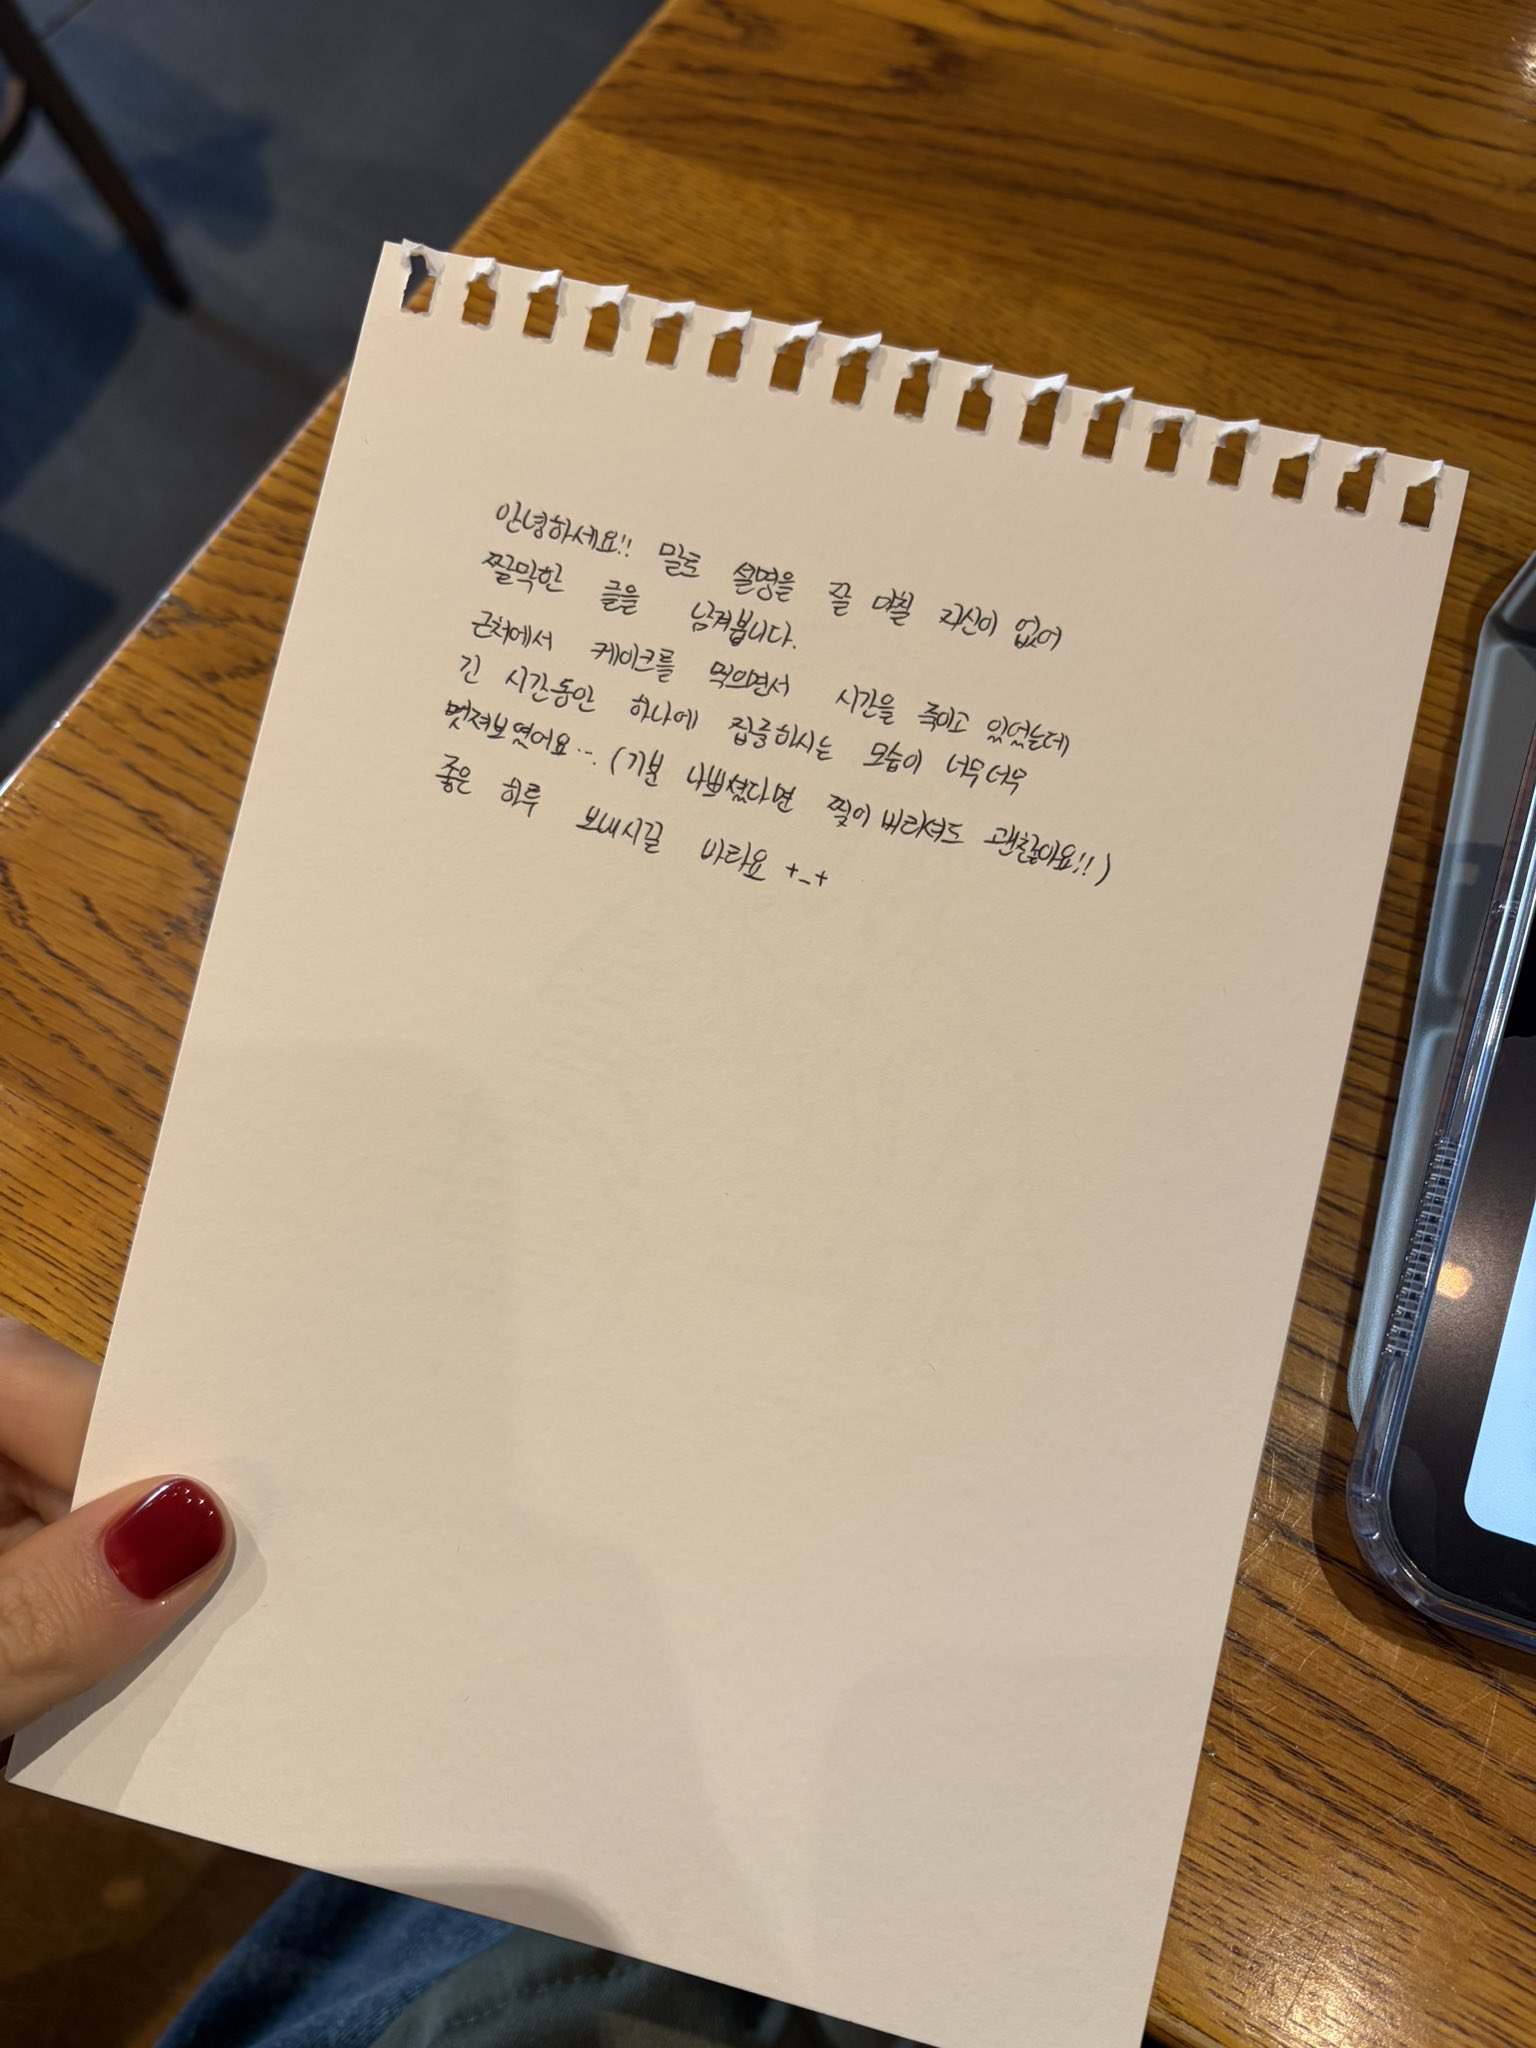 안녕하세요!! 말로 설명을 끝 마칠 자신이 없어
짤막한 글을 남겨봅니다.
근처에서 케이크를 먹으면서 시간을 죽이고 있었는데
긴 시간동안 하나에 집중하시는 모습이 너무너무
멋져보였어요... (기분 나쁘셨다면 찢어버리셔도 괜찮아요!!)
좋은 하루 보내시길 바라요 +_+